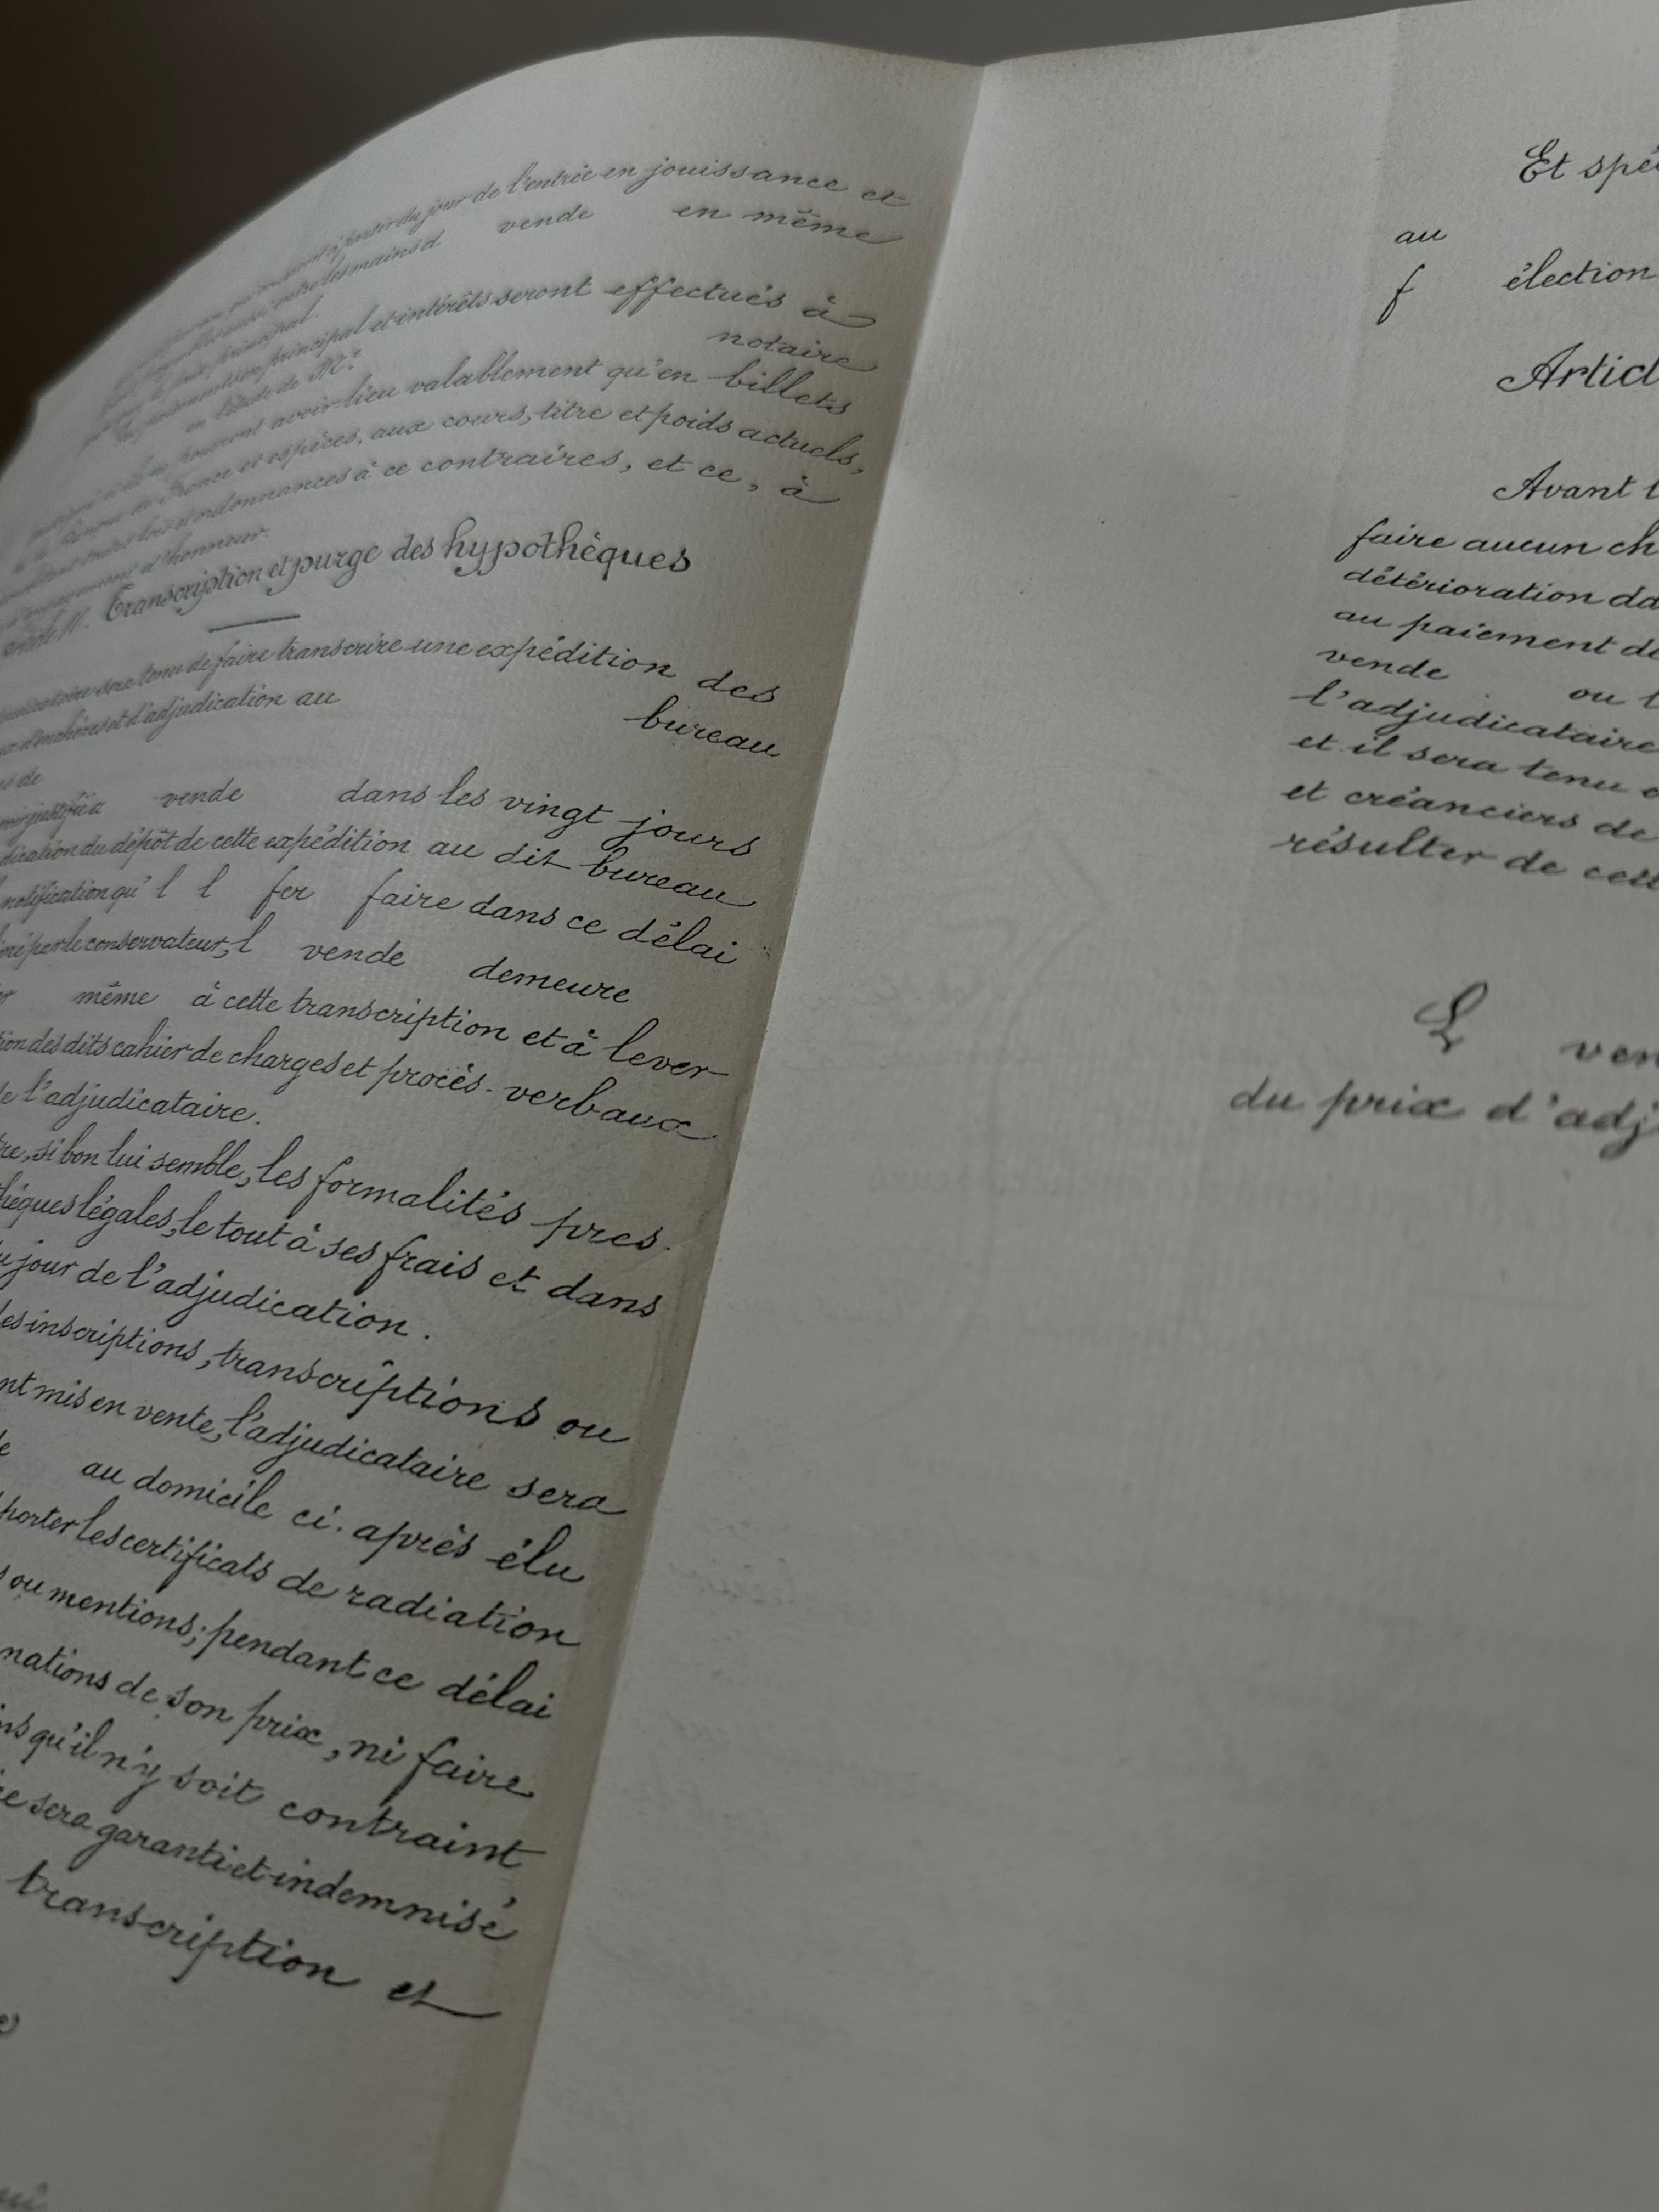 jour de l'entrée en jouissance et
entre les mains d vende en même
principal.
principal et intérêts seront effectués à
en l'étude de Me notaire
pourront avoir lieu valablement qu'en billets
de France et espèces, aux cours, titre et poids actuels,
lois et ordonnances à ce contraires, et ce, à
d'honneur.
Transcription et purge des hypothèques
sera tenu de faire transcrire une expédition des
d'enchères et d'adjudication au bureau
de
justifié a vende dans les vingt jours
du dépôt de cette expédition au dit bureau
notification qu' l l fer faire dans ce délai
par le conservateur, l vende demeure
même à cette transcription et à lever
tion des dits cahier de charges et procès-verbaux
de l'adjudicataire.
re, si bon lui semble, les formalités pres-
hèques légales, le tout à ses frais et dans
u jour de l'adjudication.
des inscriptions, transcriptions ou
nt mis en vente, l'adjudicataire sera
e au domicile ci-après élu
porter les certificats de radiation
s ou mentions; pendant ce délai
nations de son prix, ni faire
ns qu'il n'y soit contraint
e sera garanti et indemnisé
transcription et
Et spé
au
f élection
Artic
Avant l
faire aucun ch
détérioration da
au paiement d
vende ou l
l'adjudicataire
et il sera tenu
et créanciers de
résulter de cett
L ven
du prix d'adj